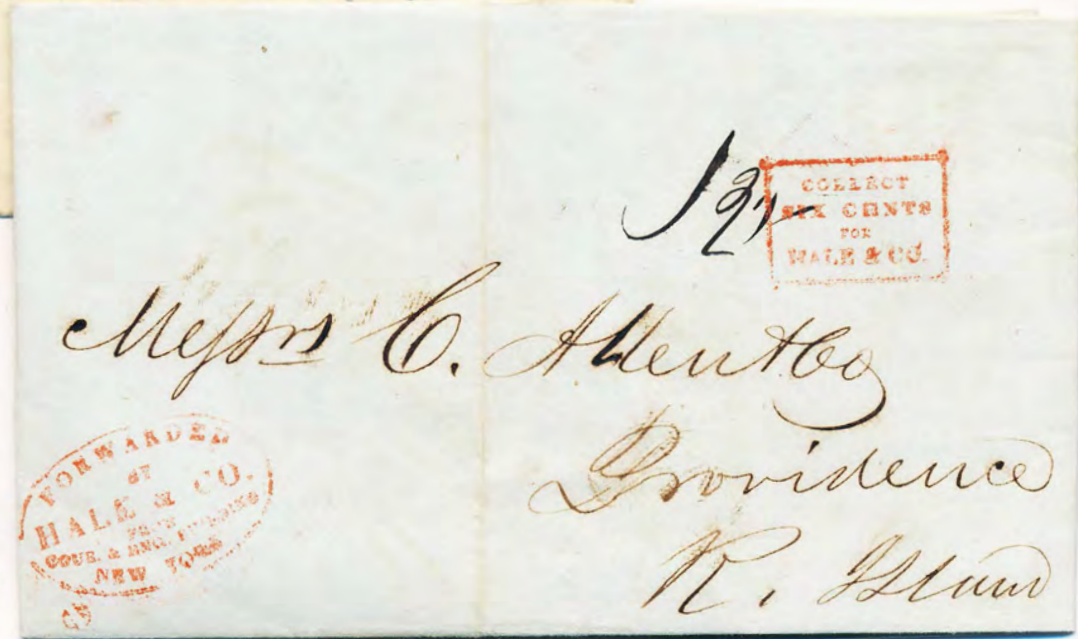 12½
COLLECT
SIX CENTS
FOR
HALE & CO.
Messrs C. Allen & Co
Providence
R. Island
FORWARDED
BY
HALE & CO.
FROM
COUR. & ENQ. BUILDING
NEW YORK